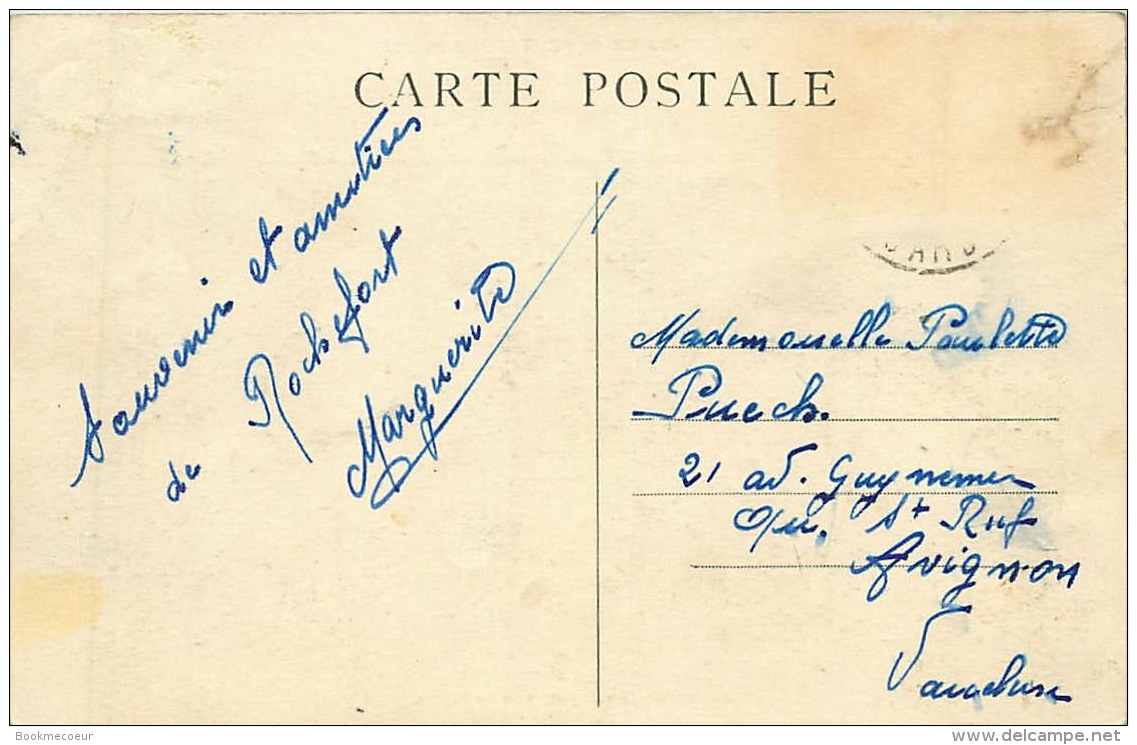 CARTE POSTALE
Souvenir et amitiées
de Rochefort
Marguerite
GARD
Mademoiselle Paulette
Puech.
21 av. Guynemer
St Ruf
Avignon
Vaucluse
Bookmecoeur
www.delcampe.net